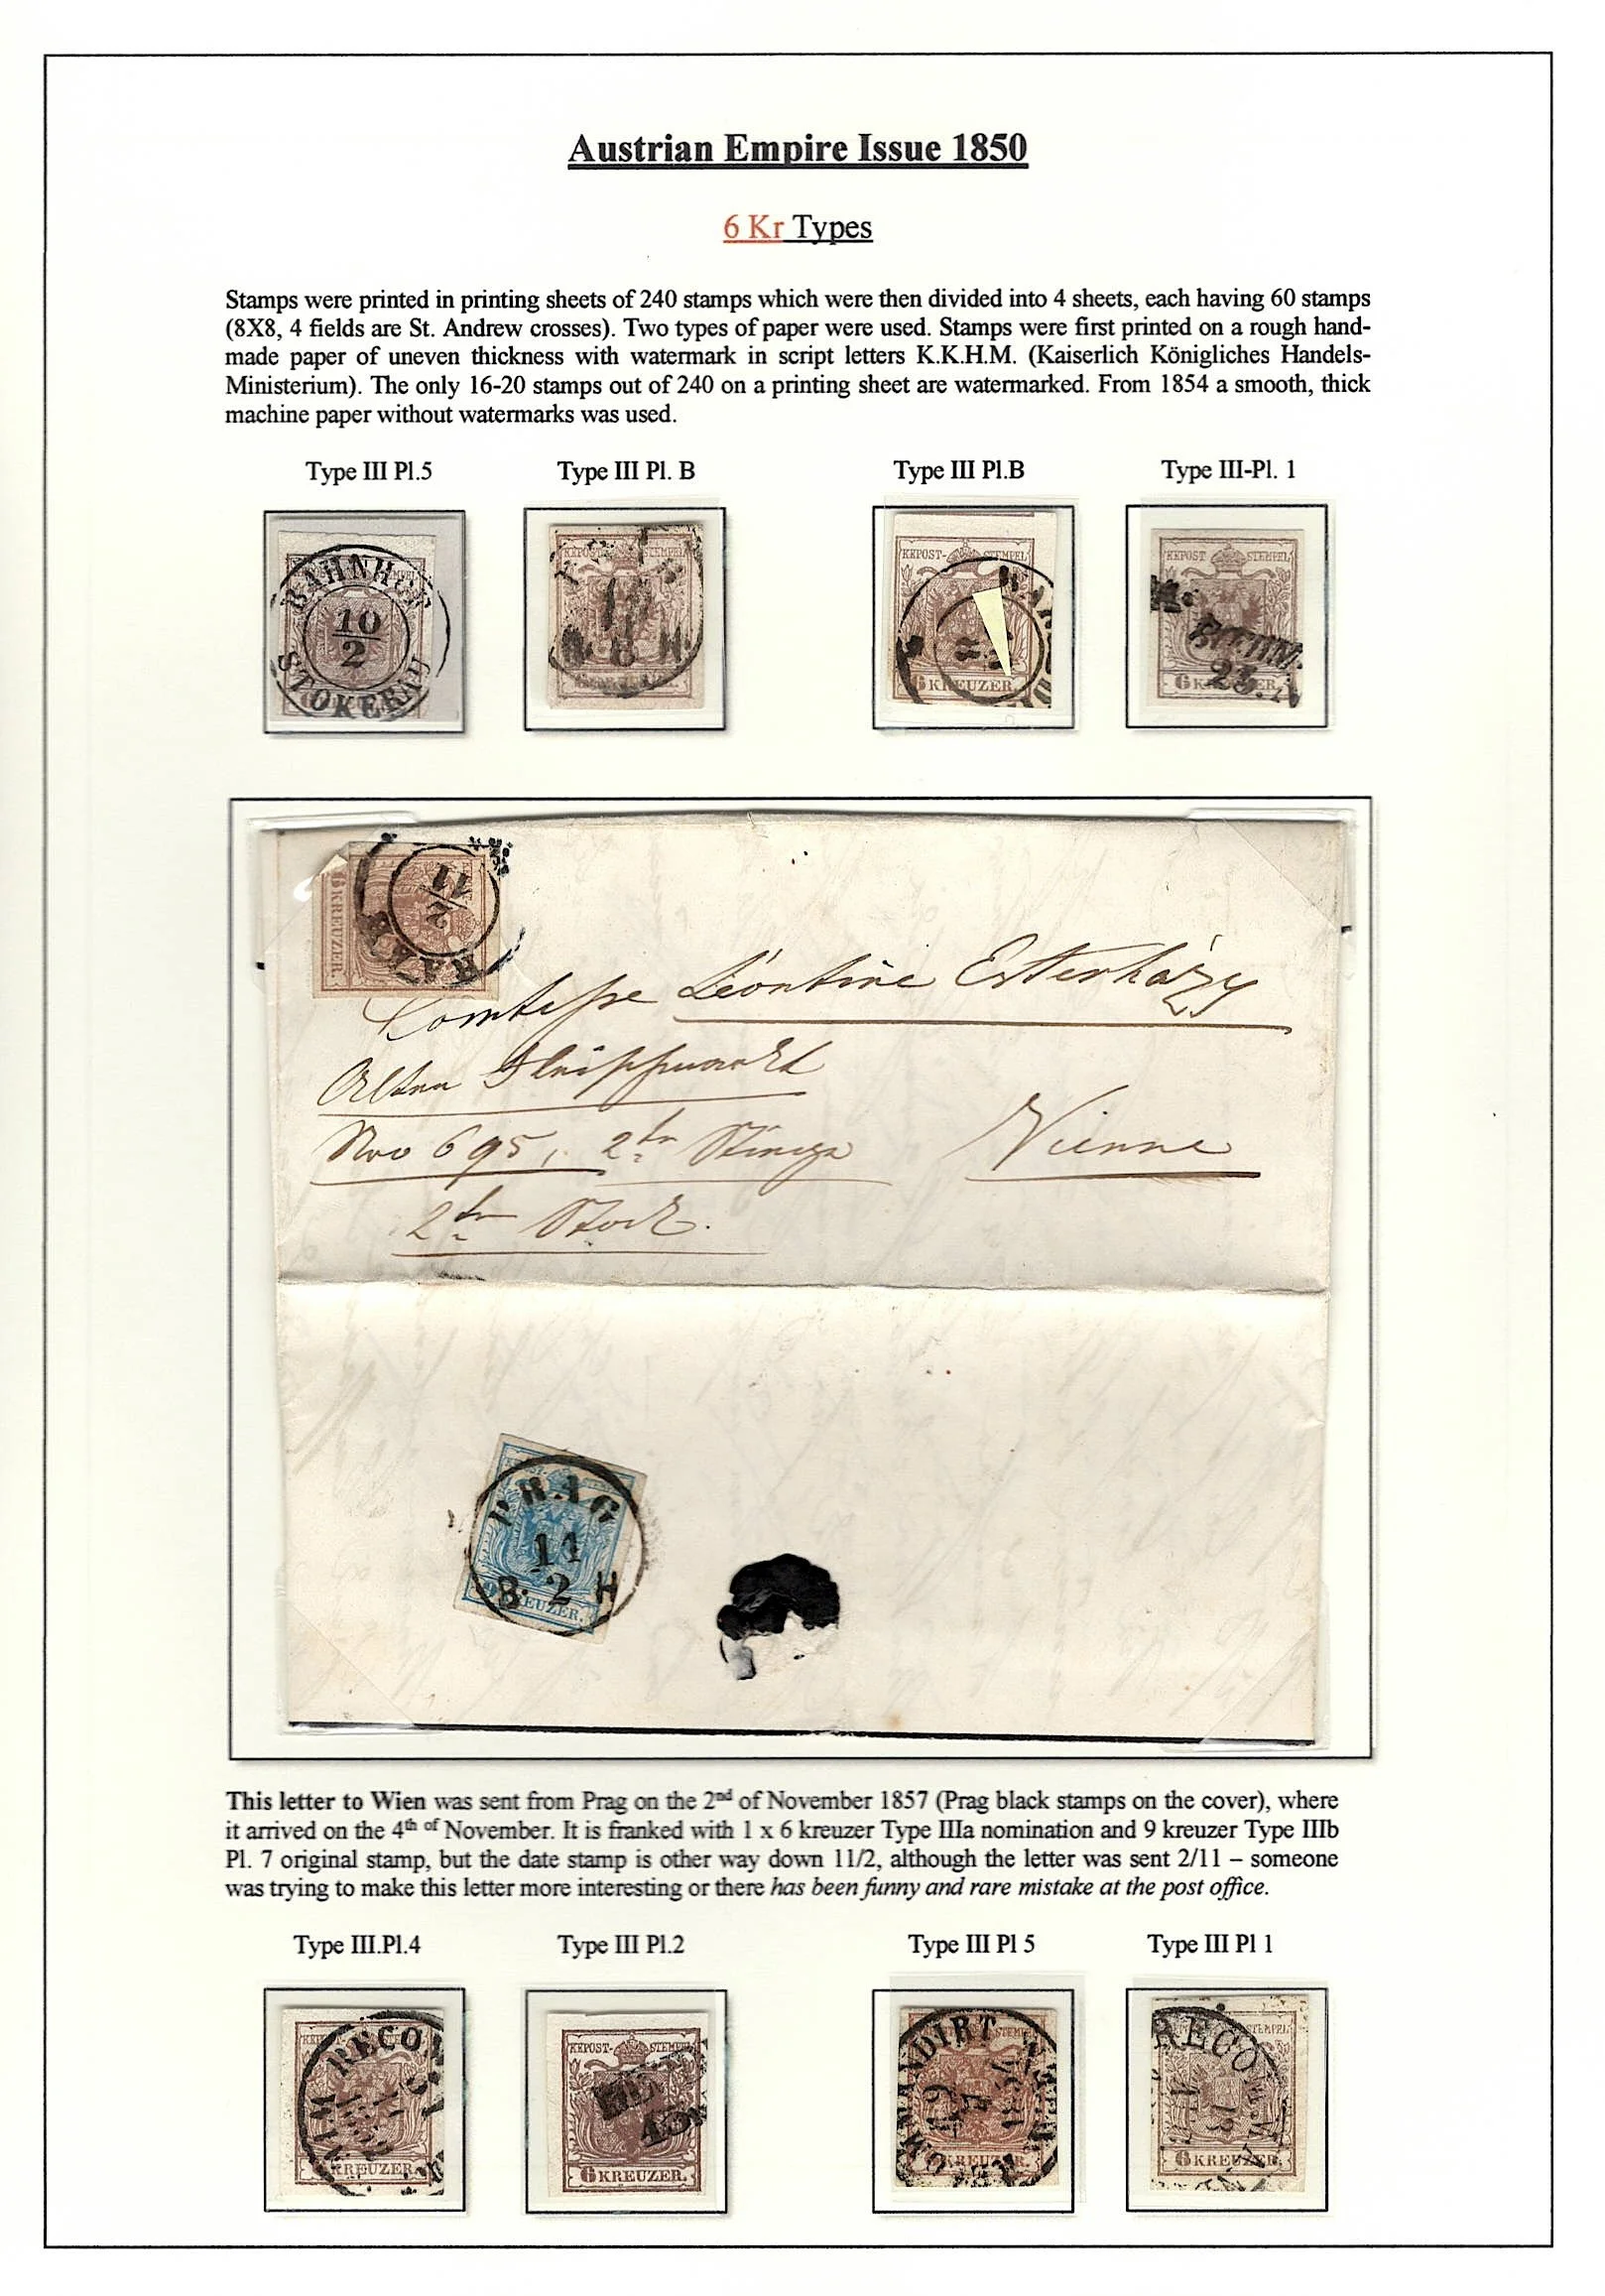 Austrian Empire Issue 1850
6 Kr Types
Stamps were printed in printing sheets of 240 stamps which were then divided into 4 sheets, each having 60 stamps
(8X8, 4 fields are St. Andrew crosses). Two types of paper were used. Stamps were first printed on a rough hand-
made paper of uneven thickness with watermark in script letters K.K.H.M. (Kaiserlich Königliches Handels-
Ministerium). The only 16-20 stamps out of 240 on a printing sheet are watermarked. From 1854 a smooth, thick
machine paper without watermarks was used.
Type III Pl.5
Type III Pl. B
Type III Pl.B
Type III-Pl. 1
BAHNHOF
10
2
STOKERAU
KKPOST-STEMPEL
KKPOST-STEMPEL
6 KREUZER.
KKPOST-STEMPEL
6 KREUZER.
Comtesse Léontine Esterházy
Nro 695, 2te Stiege
Vienne
2te Stock.
PRAG
11
8. 2 H
9 KREUZER.
This letter to Wien was sent from Prag on the 2nd of November 1857 (Prag black stamps on the cover), where
it arrived on the 4th of November. It is franked with 1 x 6 kreuzer Type IIIa nomination and 9 kreuzer Type IIIb
Pl. 7 original stamp, but the date stamp is other way down 11/2, although the letter was sent 2/11 – someone
was trying to make this letter more interesting or there has been funny and rare mistake at the post office.
Type III.Pl.4
Type III Pl.2
Type III Pl 5
Type III Pl 1
RECOM
KREUZER.
KKPOST-STEMPEL
6 KREUZER.
RECOM
6 KREUZER.